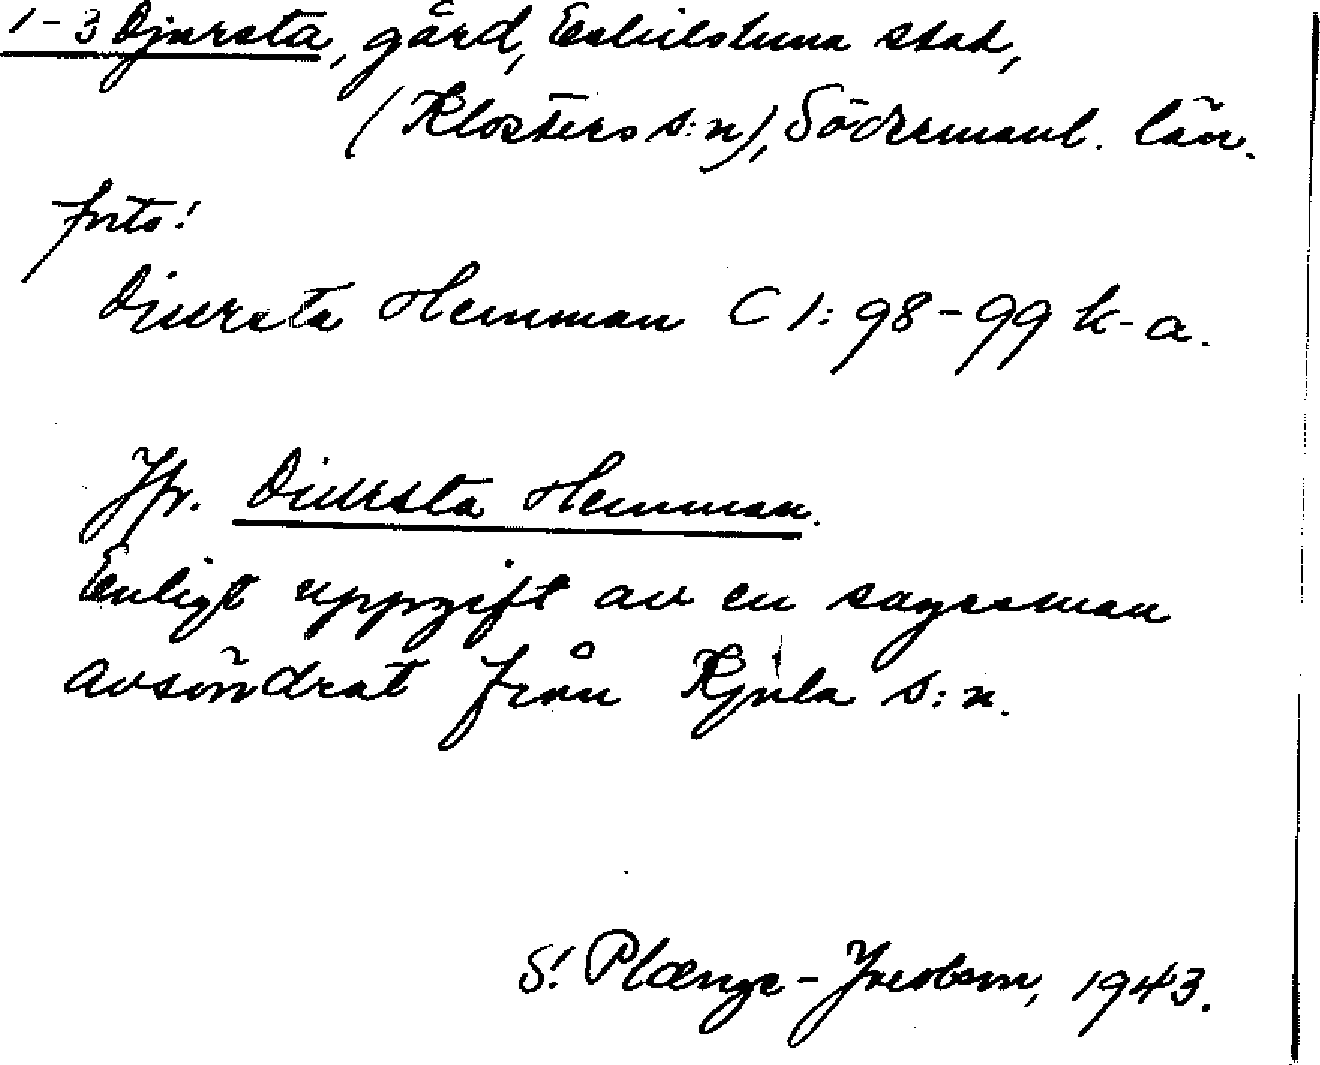 1-3 Djursta, gård, Eskilstuna stad,
(Klosters s:n), Södermanl. län.
Diursta Hemman C 1: 98-99 k-a.
Jfr. Diursta Hemman.
Enligt uppgift av en sagesman
avsöndrat från Kjula s:n.
S. Plænge-Jacobson, 1943.